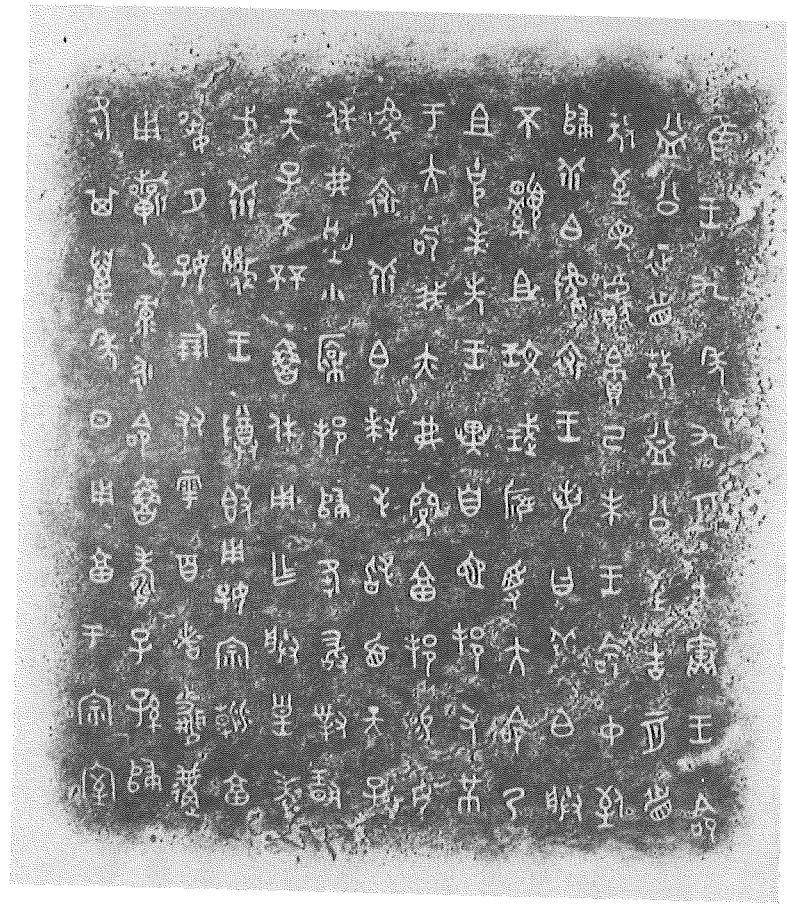 隹王九年九月甲寅王命
益公征眉敖益公至告二月眉
敖至見獻帛己未王命中致
歸乖白貔裘王若曰乖白朕
不顯且玟珷雁受大命乃
且克先王異自它邦又芇
于大命我亦弗享邦易
女貔裘乖白拜手首天子
休弗望小邦歸夆敢對揚
天子不魯休用乍朕皇考
武乖幾王尊簋用好宗廟享
夙夕好倗友雩百者婚媾
用祈屯彔永命魯壽子孫歸
夆其邁年日用享于宗室